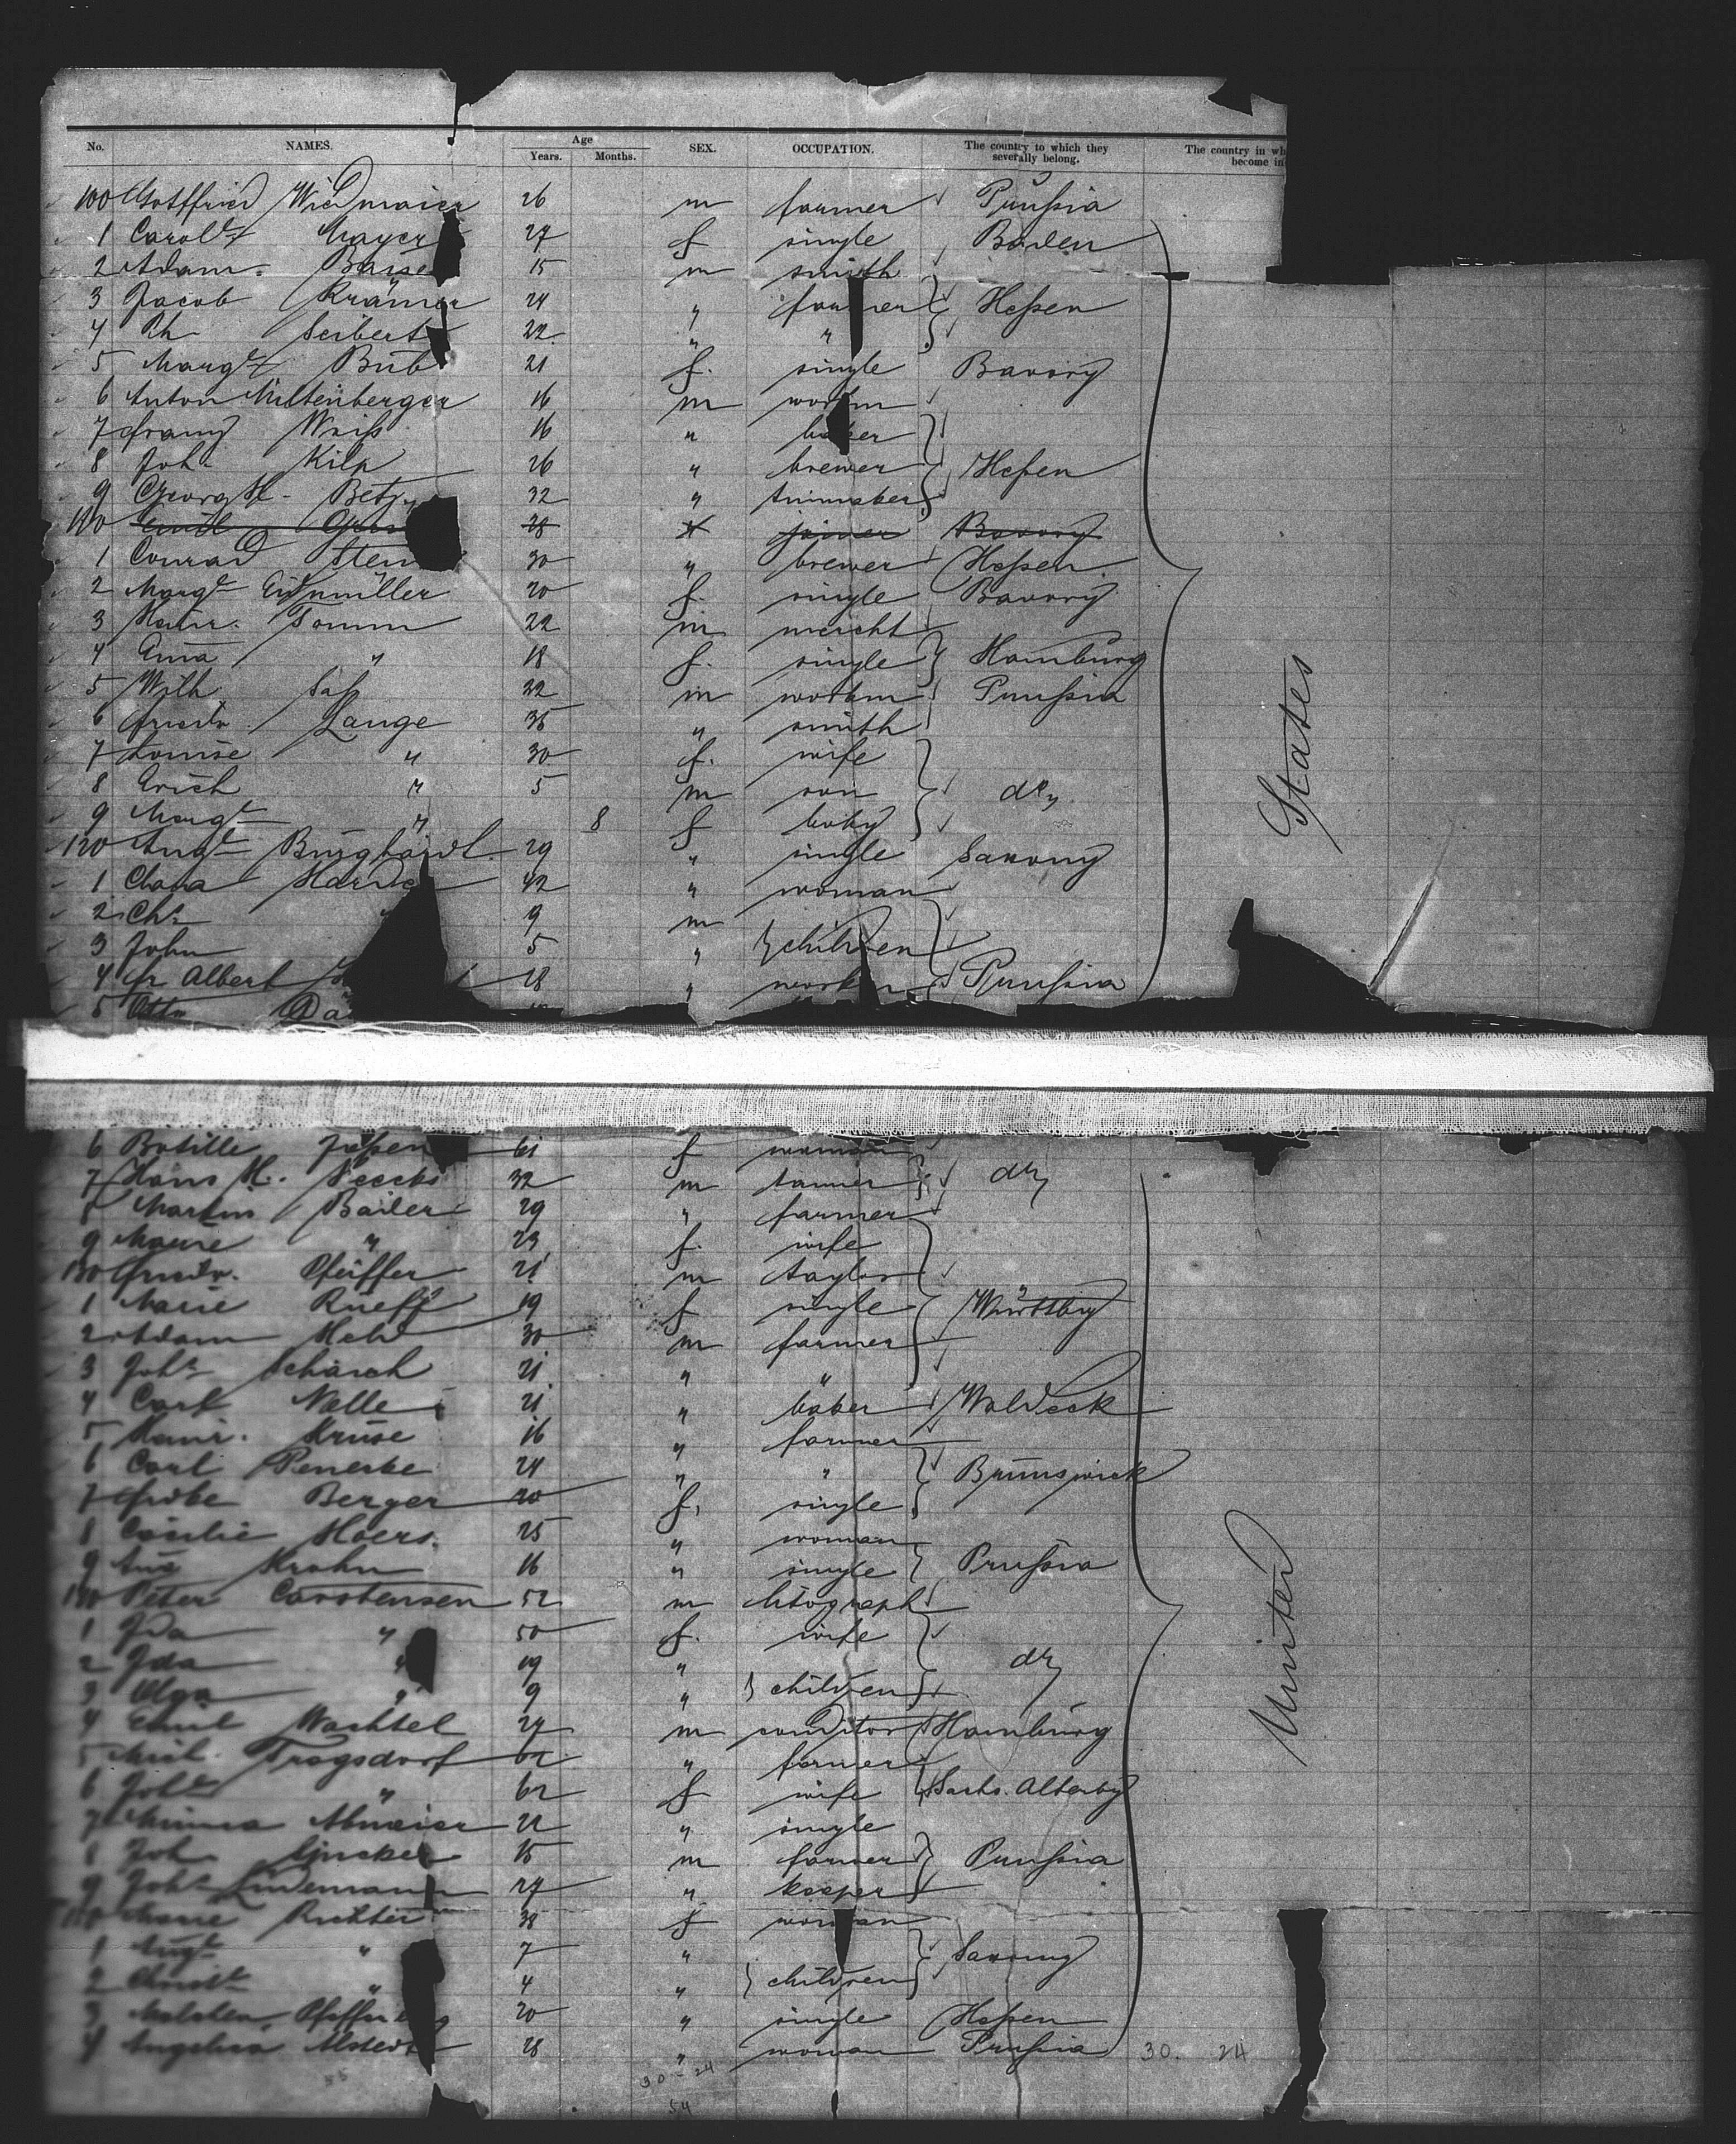 No. NAMES. Age Years. Months. SEX. OCCUPATION. The country to which they severally belong. The country in wh become in
100 Gottfried Wiedmaier 26 m farmer Prußia
1 Carole Mayer 27 f single Baden
2 Adam Baise 15 m smith
3 Jacob Krämer 24 " farmer Heßen
4 Ph Seibert 22 " "
5 Margt Bub 21 f. single Bavory
6 Anton Miltenberger 16 m workm
7 Franz Weiß 16 " baker
8 Joh. Kilp 26 " brewer Heßen
9 Georg H. Betz 32 "
110 28 joiner Bavory
1 Conrad Stein 30 " brewer Heßen
2 Margt Eidnmüller 20 f. single Bavory
3 Heinr. Tomm 22 m mercht
4 Ema " 18 f. single Hamburg
5 Wilh Saß 22 m workm Prußia
6 Friedr. Lange 35 " smith
7 Louise " 30 f. wife
8 Erich " 5 m son do
9 Margt " 8 f baby
120 Augt Burghardt 29 " single Saxony
1 Clara 42 " woman
2 Chr 9 m
3 John 5 " children
4 Fr Albert 28 " Prußia
5 Otto
6 Botille Jeßen 61 f woman
7 Hans H. 32 m tanner do
8 Martin Bailer 29 " farmer
9 Marie " 23 f. wife
130 Friedr. Pfeiffer 21 m taylor
1 Marie Rueff 19 f single Württbg
2 Adam Hehr 30 m farmer
3 Johs Schärch 21 " "
4 Carl Nelle 21 " baker Waldeck
5 Heinr. Kruse 16 " farmer
6 Carl 24 " " Brunswick
7 Berger 20 f. single
8 Cäcilie Hoers. 25 " woman
9 Ana Krohn 16 " single Prußia
140 Peter Carstensen 52 m litograph
1 Ida " 50 f. wife
2 Ida " 19 " do
3 Olga " 9 " children
4 Emil Wachtel 27 m conditor Hamburg
5 Mich. Tragsdorf 62 " farmer
6 Johe " 62 f wife Sachs. Altenbg
7 Minna 22 " single
8 Joh 15 m farmer Prußia
9 Johs Lindemann 27 " kooper
150 Marie Richter 38 f woman
1 Augt " 7 " Saxony
2 Christe " 4 " children
3 20 " single Heßen
4 Angelica 28 " woman Prußia 30. 24
30 - 24
54
States
United